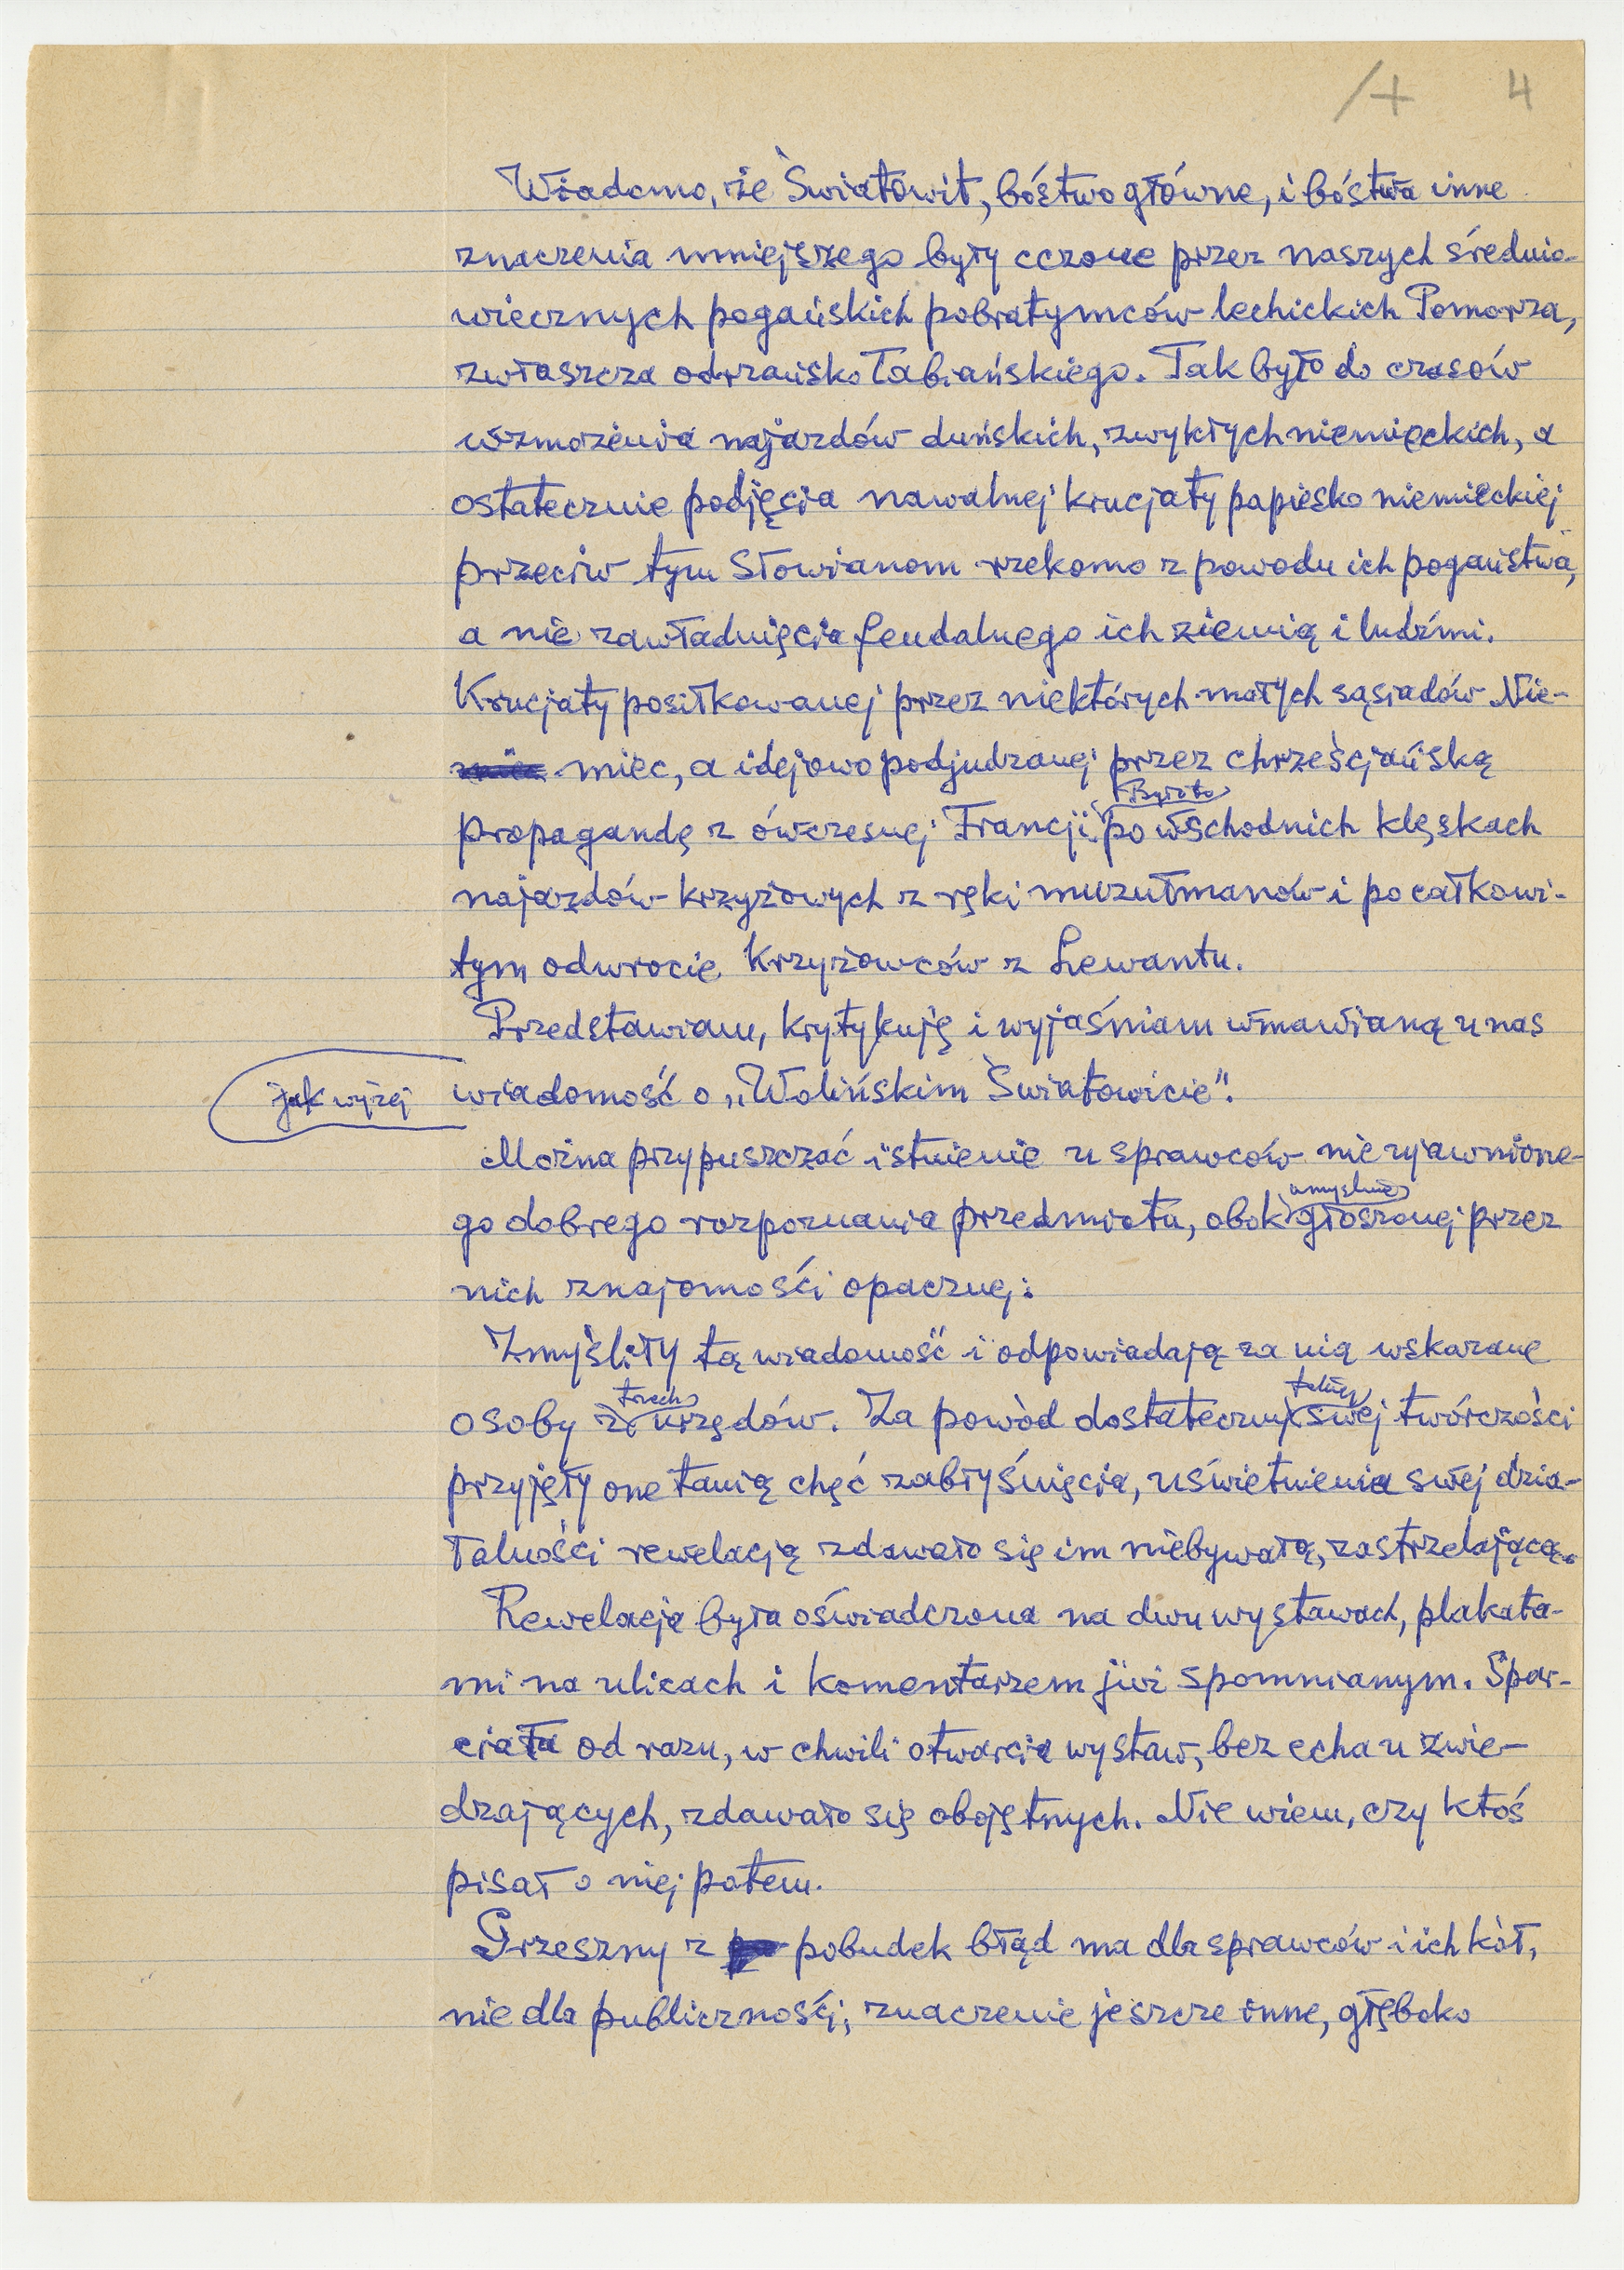 /+ 4
Wiadomo, że Światowit, bóstwo główne, i bóstwa inne
znaczenia mniejszego były czczone przez naszych średnio-
wiecznych pogańskich pobratymców lechickich Pomorza,
zwłaszcza odrzańsko łabiańskiego. Tak było do czasów
wzmożenia najazdów duńskich, zwykłych niemieckich, a
ostatecznie podjęcia nawalnej krucjaty papiesko niemieckiej
przeciw tym Słowianom rzekomo z powodu ich pogaństwa,
a nie zawładnięcia feudalnego ich ziemią i ludźmi.
Krucjaty posiłkowanej przez niektórych małych sąsiadów Nie-
miec, a idejowo podjudzanej przez chrześcijańską
Było to
propagandę z ówczesnej Francji. po wschodnich klęskach
najazdów krzyżowych z ręki muzułmanów i po całkowi-
tym odwrocie Krzyżowców z Lewantu.
Przedstawiam, krytykuję i wyjaśniam wmawianą u nas
jak wyżej wiadomość o „Wolińskim Światowicie".
Można przypuszczać istnienie u sprawców nie ujawnione-
umyślnie
go dobrego rozpoznania przedmiotu, obok głoszonej przez
nich znajomości opacznej.
Zmyśliły tą wiadomość i odpowiadają za nią wskazane
trzech takiej
osoby z urzędów. Za powód dostateczny swej twórczości
przyjęły one tanią chęć zabłyśnięcia, uświetnienia swej dzia-
łalności rewelacją zdawało się im niebywałą, zastrzelającą.
Rewelacja była oświadczona na dwu wystawach, plakata-
mi na ulicach i komentarzem już spomnianym. Spar-
ciała od razu, w chwili otwarcia wystaw, bez echa u zwie-
dzających, zdawało się obojętnych. Nie wiem, czy ktoś
pisał o niej potem.
Grzeszny z pobudek błąd ma dla sprawców i ich kół,
nie dla publiczności, znaczenie jeszcze inne, głęboko